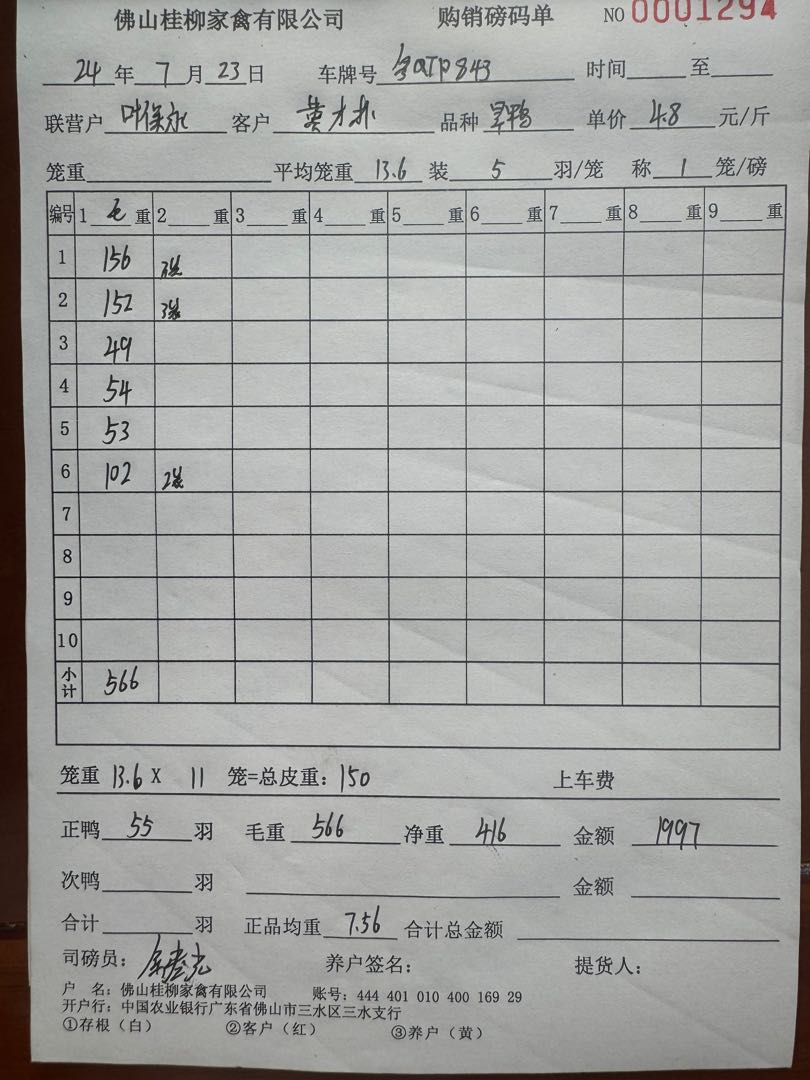 佛山桂柳家禽有限公司 购销磅码单 NO 0001294
24年7月23日 车牌号 843 时间 至
联营户 叶保永 客户 黄才林 品种 旱鸭 单价 4.8 元/斤
笼重 平均笼重 13.6 装 5 羽/笼 称 1 笼/磅
编号 1 毛 重 2 重 3 重 4 重 5 重 6 重 7 重 8 重 9 重
1 156 3笼
2 152 3笼
3 49
4 54
5 53
6 102 2笼
7
8
9
10
小计 566
笼重 13.6 X 11 笼=总皮重：150 上车费
正鸭 55 羽 毛重 566 净重 416 金额 1997
次鸭 羽 金额
合计 羽 正品均重 7.56 合计总金额
司磅员： 养户签名： 提货人：
户 名：佛山桂柳家禽有限公司 账号：444 401 010 400 169 29
开户行：中国农业银行广东省佛山市三水区三水支行
①存根（白） ②客户（红） ③养户（黄）